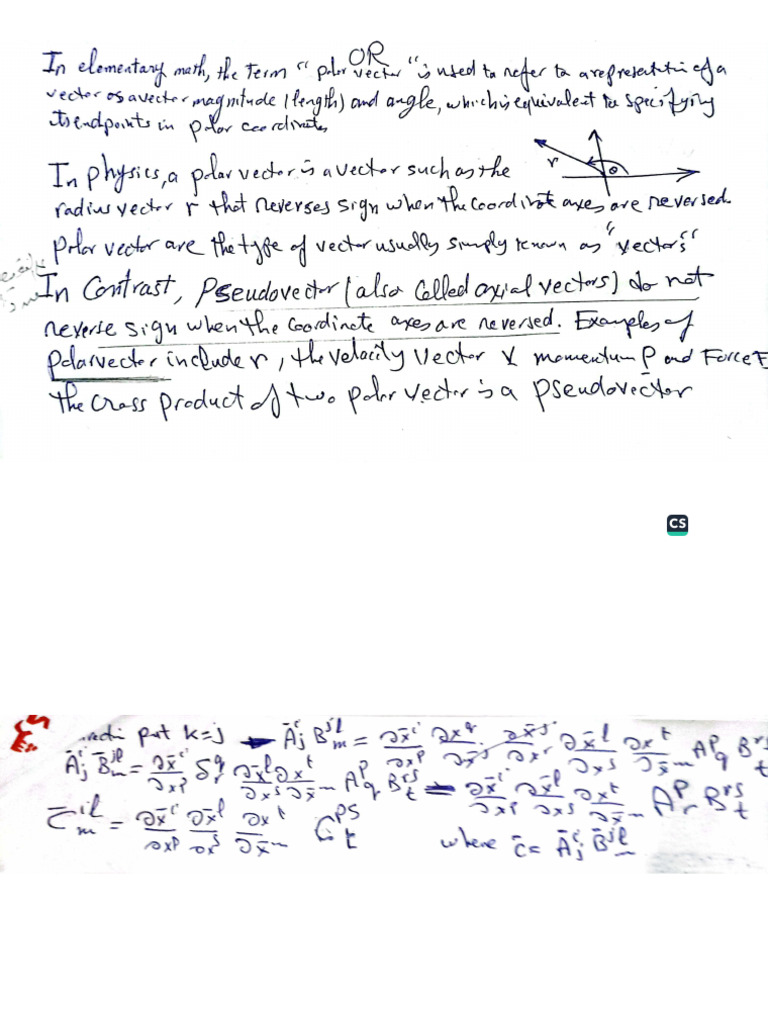 OR
In elementary math, the term "polar vector" is used to refer to a representation of a
vector as a vector magnitude (length) and angle, which is equivalent to specifying
its endpoints in polar coordinates
In physics, a polar vector is a vector such as the
r θ
radius vector r that reverses sign when the coordinate axes are reversed.
Polar vector are the type of vector usually simply known as "vectors"
In Contrast, Pseudovector (also called axial vectors) do not
reverse sign when the coordinate axes are reversed. Examples of
polar vector include r, the velocity vector v momentum P and Force F
the cross product of two polar vector is a pseudovector
CS
put k=j Ā^i_j B^{jl}_m = ∂x̄^i/∂x^p ∂x^q/∂x̄^j ∂x̄^j/∂x^r ∂x̄^l/∂x^s ∂x^t/∂x̄^m A^p_q B^{rs}_t
Ā^i_j B̄^{jl}_m = ∂x̄^i/∂x^p δ^q_r ∂x̄^l/∂x^s ∂x^t/∂x̄^m A^p_q B^{rs}_t = ∂x̄^i/∂x^p ∂x̄^l/∂x^s ∂x^t/∂x̄^m A^p_r B^{rs}_t
C̄^{il}_m = ∂x̄^i/∂x^p ∂x̄^l/∂x^s ∂x^t/∂x̄^m C^{ps}_t where C̄ = Ā^i_j B̄^{jl}_m